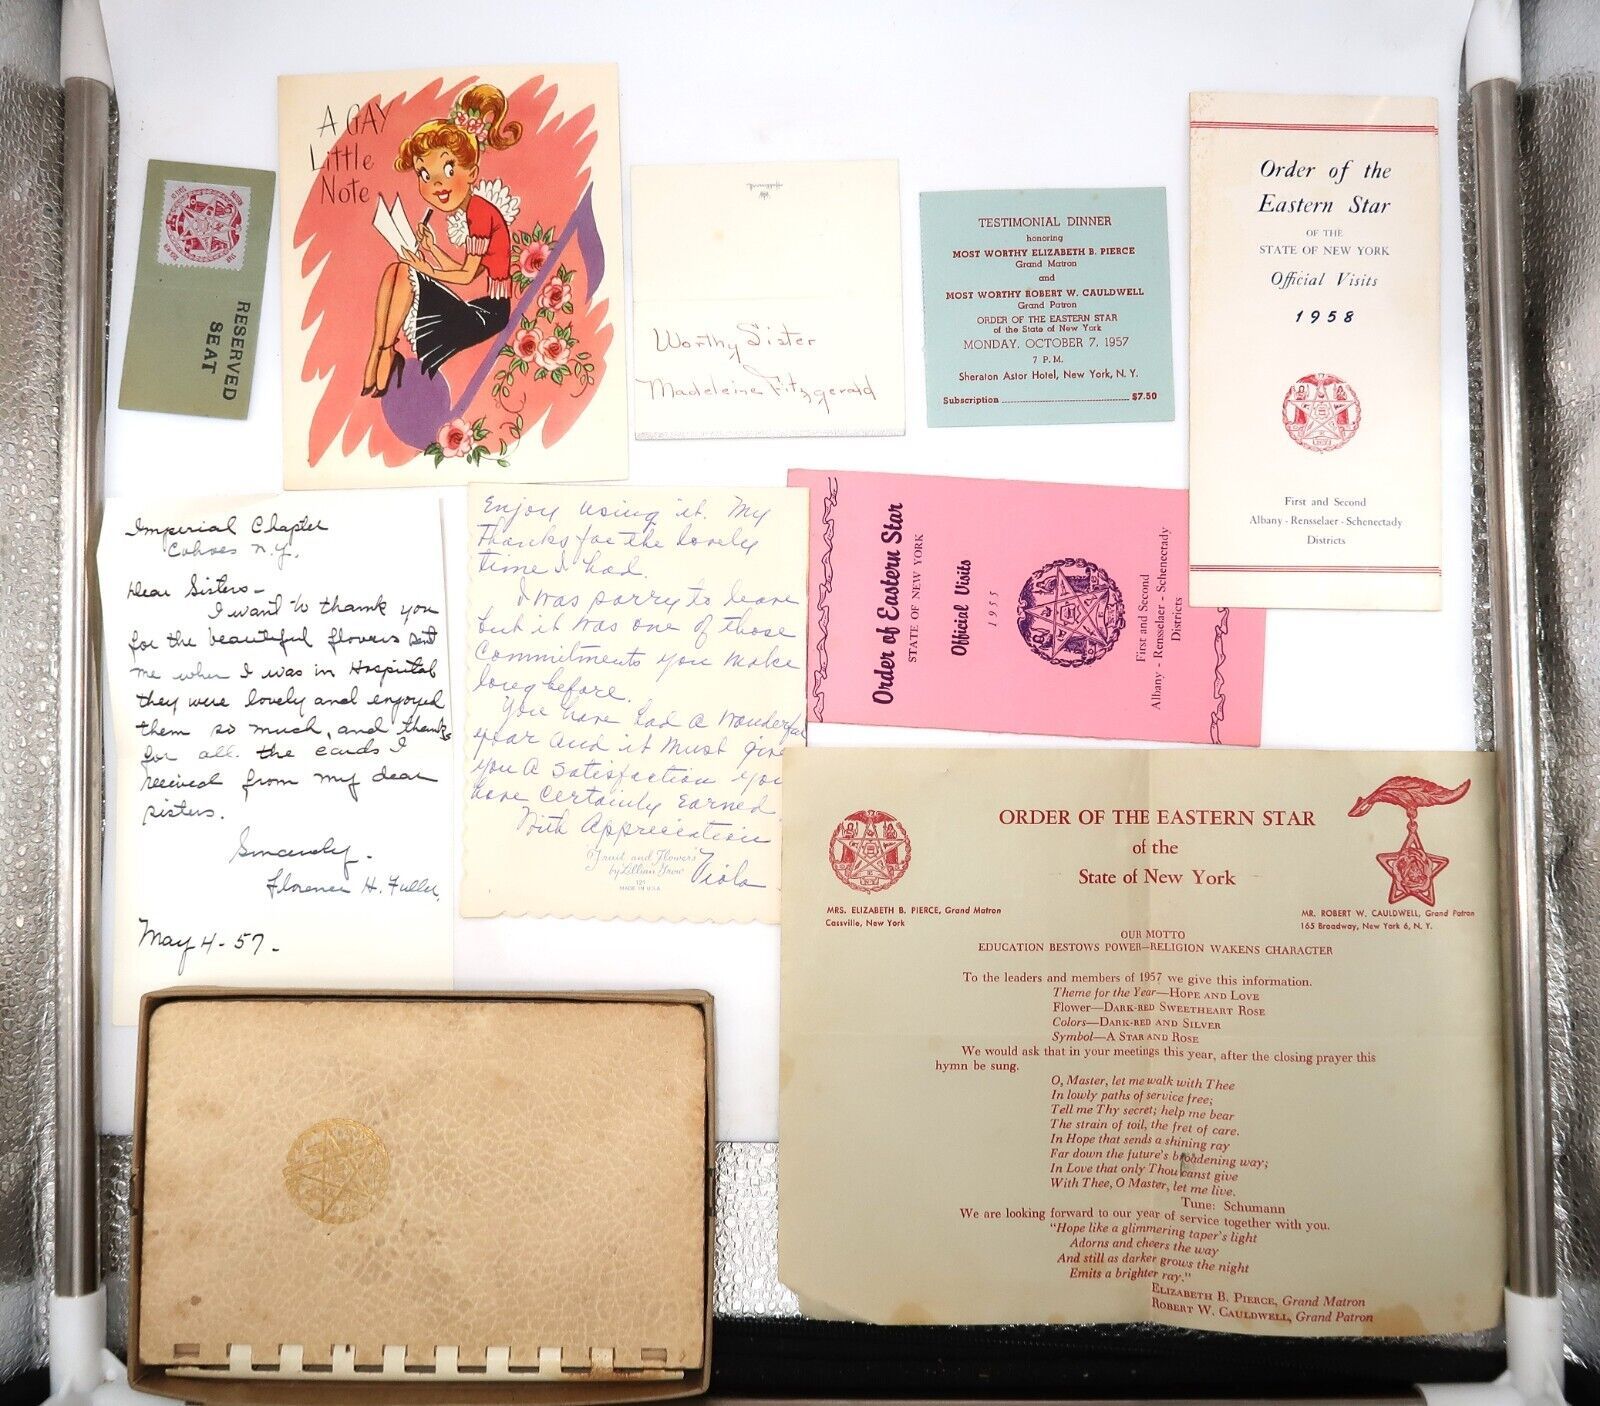 RESERVED
SEAT
A GAY
Little
Note
Hallmark
Worthy Sister
Madeleine Fitzgerald
TESTIMONIAL DINNER
honoring
MOST WORTHY ELIZABETH B. PIERCE
Grand Matron
and
MOST WORTHY ROBERT W. CAULDWELL
Grand Patron
ORDER OF THE EASTERN STAR
of the State of New York
MONDAY, OCTOBER 7, 1957
7 P.M.
Sheraton Astor Hotel, New York, N. Y.
Subscription ........ $7.50
Order of the
Eastern Star
OF THE
STATE OF NEW YORK
Official Visits
1958
First and Second
Albany - Rensselaer - Schenectady
Districts
Imperial Chapter
Cohoes N.Y.
Dear Sisters -
I want to thank you
for the beautiful flowers sent
me when I was in Hospital
they were lovely and enjoyed
them so much, and thanks
for all the cards I
received from my dear
sisters.
Sincerely -
Florence H. Fuller,
May 4 - 57 -
Enjoy using it. My
Thanks for the lovely
time I had.
I was sorry to leave
but it was one of those
commitments you make
long before.
You have had a wonderful
year and it must give
you a satisfaction you
have certainly earned
With Appreciation
Viola
"Fruit and Flowers"
by Lillian Grow
125
MADE IN U.S.A.
Order of Eastern Star
STATE OF NEW YORK
Official Visits
1955
First and Second
Albany - Rensselaer - Schenectady
Districts
ORDER OF THE EASTERN STAR
of the
State of New York
MRS. ELIZABETH B. PIERCE, Grand Matron
Cassville, New York
MR. ROBERT W. CAULDWELL, Grand Patron
165 Broadway, New York 6, N. Y.
OUR MOTTO
EDUCATION BESTOWS POWER—RELIGION WAKENS CHARACTER
To the leaders and members of 1957 we give this information.
Theme for the Year—HOPE AND LOVE
Flower—DARK-RED SWEETHEART ROSE
Colors—DARK-RED AND SILVER
Symbol—A STAR AND ROSE
We would ask that in your meetings this year, after the closing prayer this
hymn be sung.
O, Master, let me walk with Thee
In lowly paths of service free;
Tell me Thy secret; help me bear
The strain of toil, the fret of care.
In Hope that sends a shining ray
Far down the future's broadening way;
In Love that only Thou canst give
With Thee, O Master, let me live.
Tune: Schumann
We are looking forward to our year of service together with you.
"Hope like a glimmering taper's light
Adorns and cheers the way
And still as darker grows the night
Emits a brighter ray."
ELIZABETH B. PIERCE, Grand Matron
ROBERT W. CAULDWELL, Grand Patron